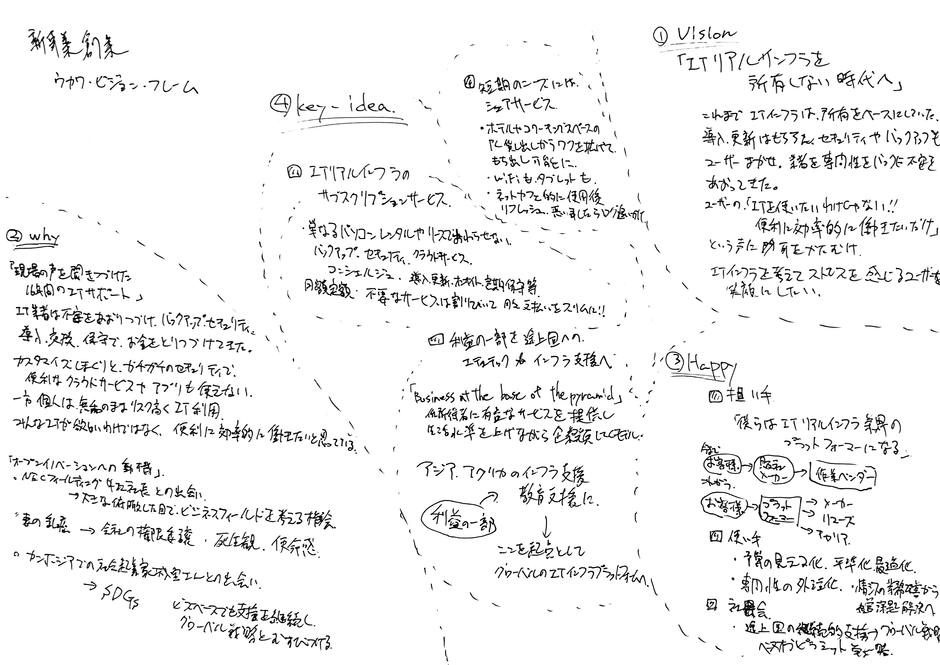 新事業創業
ウカワ・ビジョン・フレーム
① Vision
「ITリアルインフラを
所有しない時代へ」
これまでITインフラは、所有をベースにしていた。
導入、更新はもちろん、セキュリティやバックアップも
ユーザーまかせ。業者も専門性をバックに不安を
あおってきた。
ユーザーの、「ITを使いたいわけじゃない!!
便利に効率的に働きたいだけ」
という声に耳をかたむけ、
ITインフラを考えてストレスを感じるユーザーを
笑顔にしたい。
② why
「現場の声を聞きつづけた
16年間のITサポート」
IT業者は不安をあおりつづけ、バックアップ、セキュリティ、
導入、交換、保守で、お金をとりつづけてきた。
カスタマイズしまくりと、ガチガチのセキュリティで、
便利なクラウドサービスやアプリも使えない。
一方、個人は無知のままリスク高くIT利用。
みんなITが欲しいわけではなく、便利に効率的に働きたいと思っている。
「オープンイノベーションへの動機」
・NECフィールディング 社長との出会い。
→ 大きな俯瞰した目で、ビジネスフィールドを考える機会
・妻の乳癌 → 会社の権限委譲・死生観、使命感。
・カンボジアでの社会起業家 との出会い。
→ SDGs
ビズベースでも支援を継続し、
グローバル戦略とむすびつける。
③ Happy
担い手
「僕らはITリアルインフラ業界の
プラットフォーマーになる」
今まで
お客様 → メーカー → 作業ベンダー
これから
お客様 → プラットフォーマー → メーカー
→ リユース
→
使い手
・予算の見える化、平準化、最適化。
・専門性の外注化。・情シスの業務から
経営課題解決へ
社会
・途上国の継続的支援 → グローバル戦略
ベースオブピラミッド
④ key-idea.
ITリアルインフラの
サブスクリプションサービス。
・単なるパソコンレンタルやリースで終わらせない。
バックアップ、セキュリティ、クラウドサービス、
コンシェルジュ、導入、更新、 定期保守等
月額定額、不要なサービスは割りびいて月々支払いをスリムに!!
短期のニーズには、
シェアサービス
・ホテルやコワーキングスペースの
PC貸出しから を拡げて、
もち出し可能に。
・WiFiも、タブレットも。
・ネットカフェ的に使用後
リフレッシュ。
利益の一部を途上国への
エデュテック & インフラ支援へ
「Business at the base of the pyramid」
低所得者に有益なサービスを提供し
生活水準を上げながら企業 モデル。
アジア、アフリカのインフラ支援
教育支援に
利益の一部
ここを起点として
グローバルのITインフラプラットフォームへ。